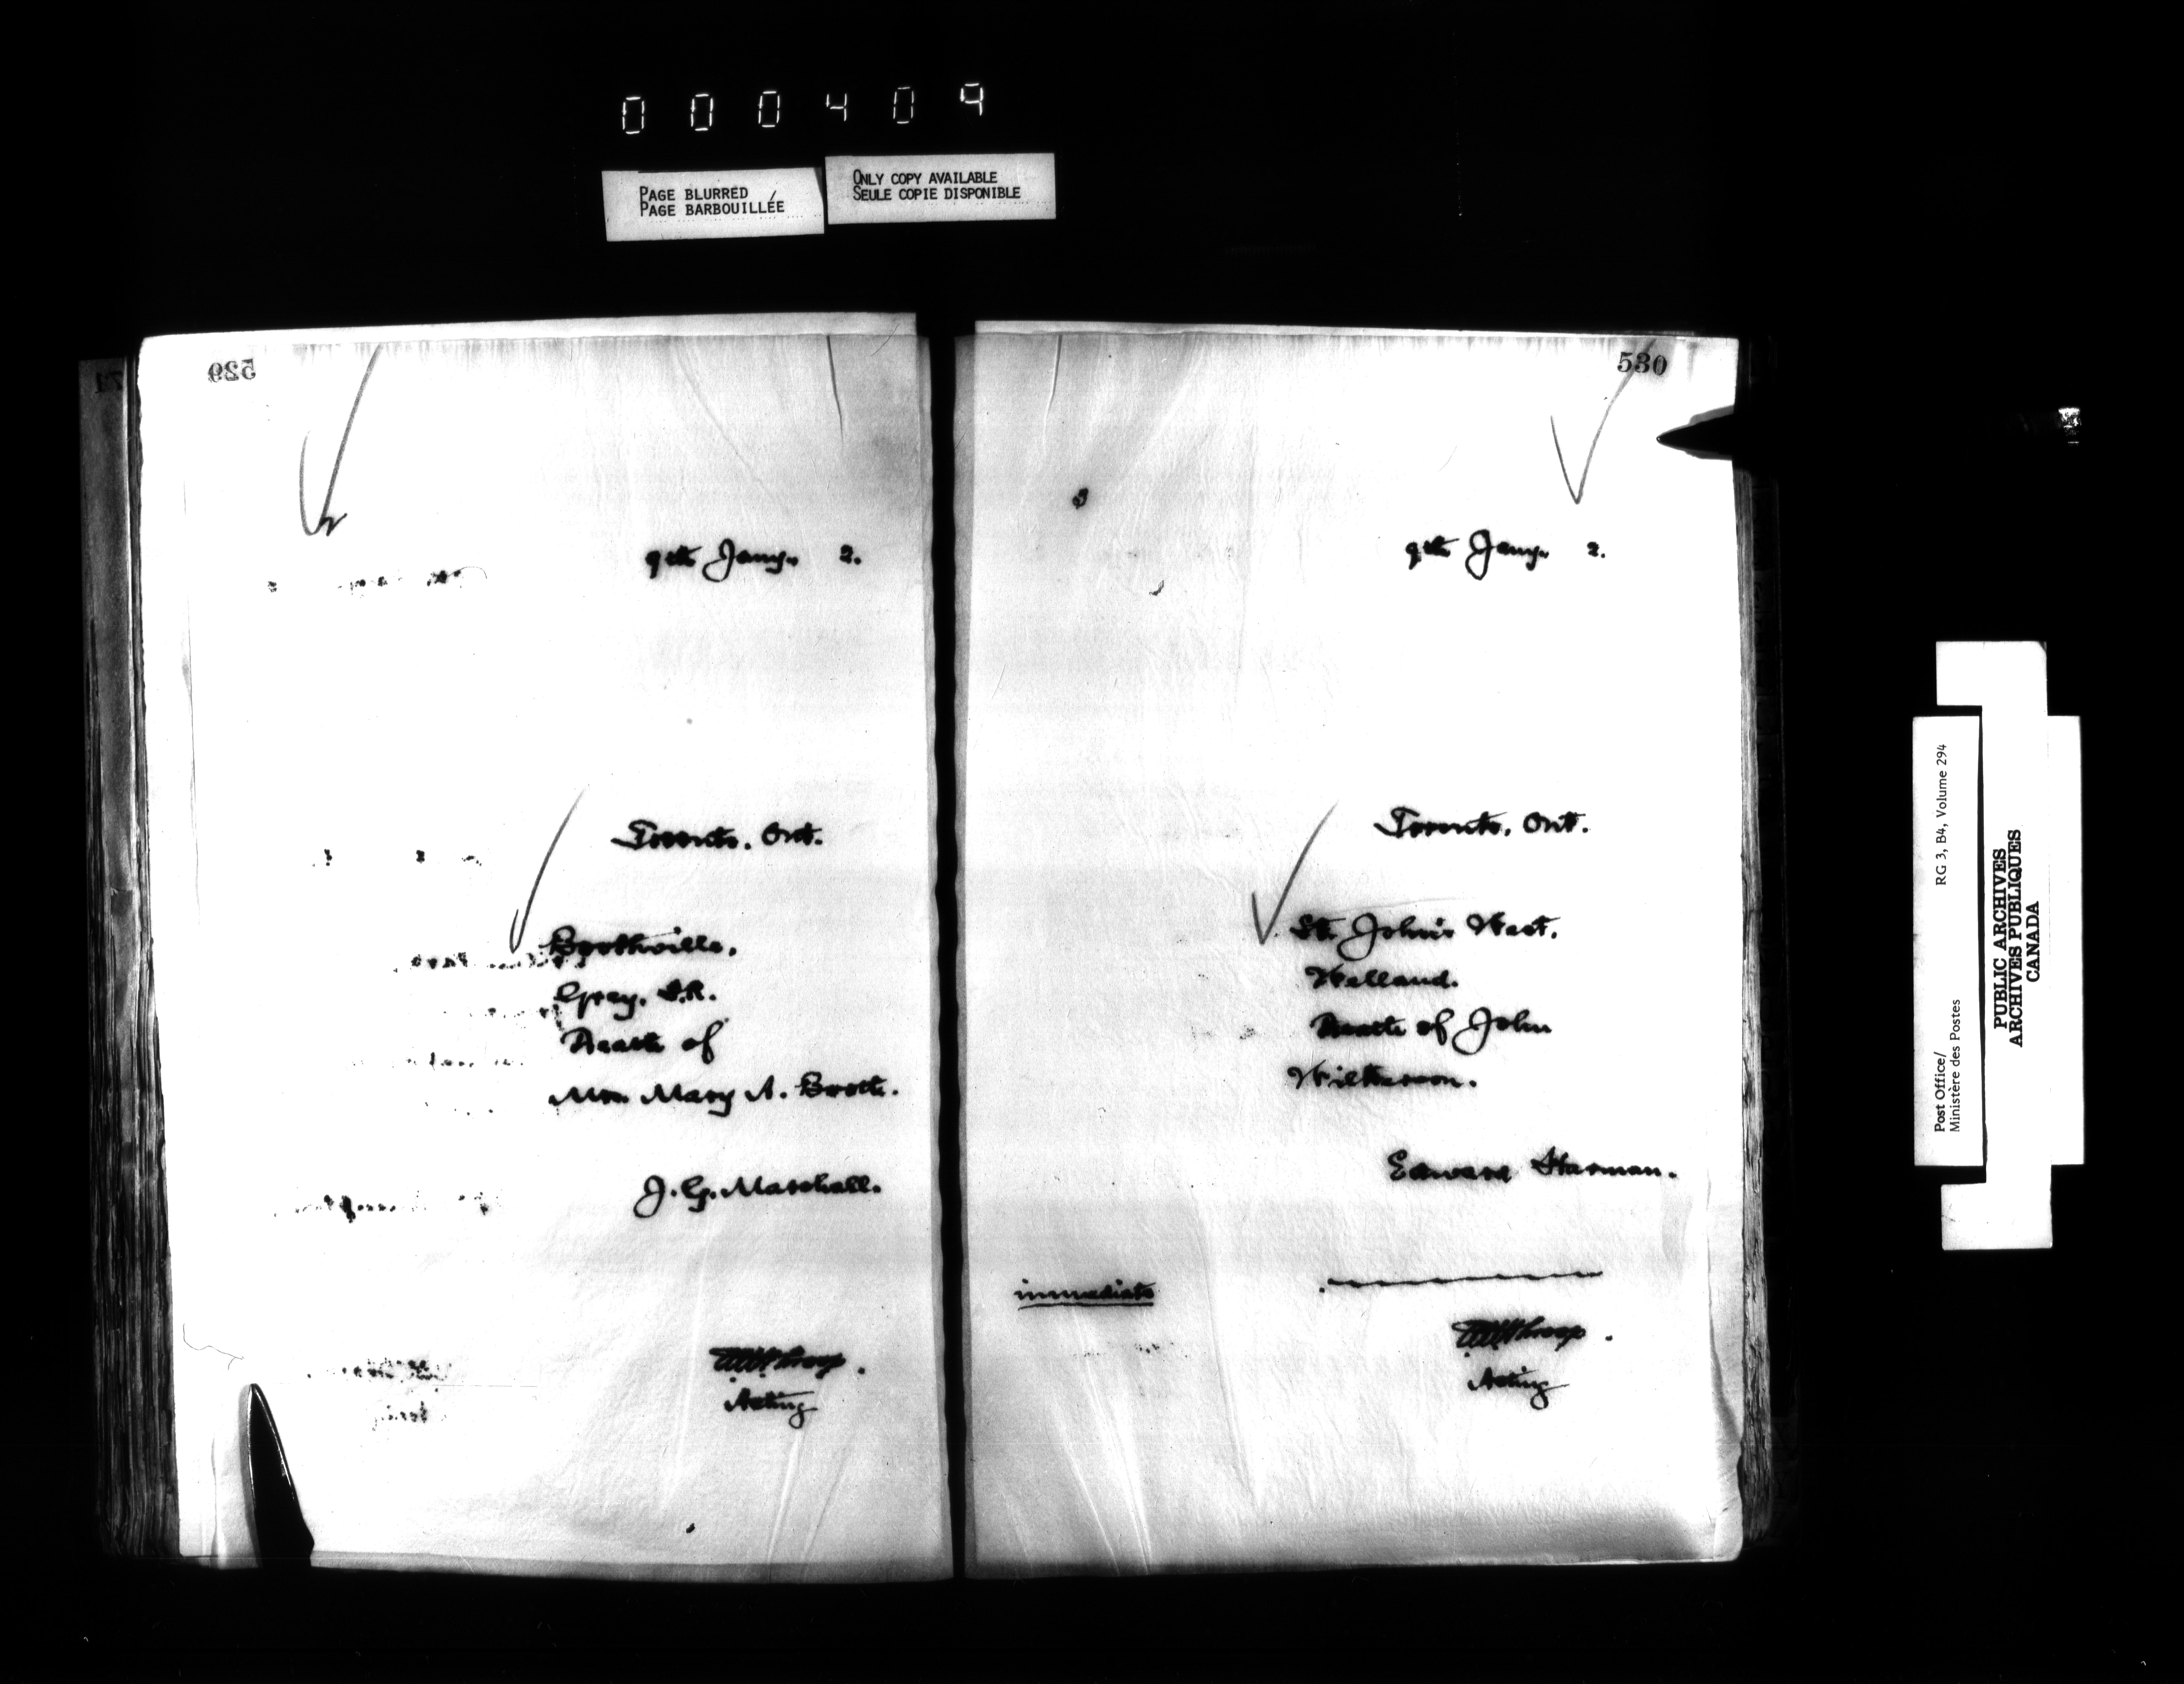 000409
PAGE BLURRED
PAGE BARBOUILLÉE
ONLY COPY AVAILABLE
SEULE COPIE DISPONIBLE
529
9th Jany. 2.
Toronto, Ont.
Boothville,
Grey. S.R.
Death of
Mrs. Mary A. Booth.
J. G. Marshall.
Acting
530
9th Jany. 2.
Toronto, Ont.
St. John's West,
Welland.
Death of John
Wilkerson.
Edward Harman.
immediate
Acting
Post Office/
Ministère des Postes
RG 3, B4, Volume 294
PUBLIC ARCHIVES
ARCHIVES PUBLIQUES
CANADA